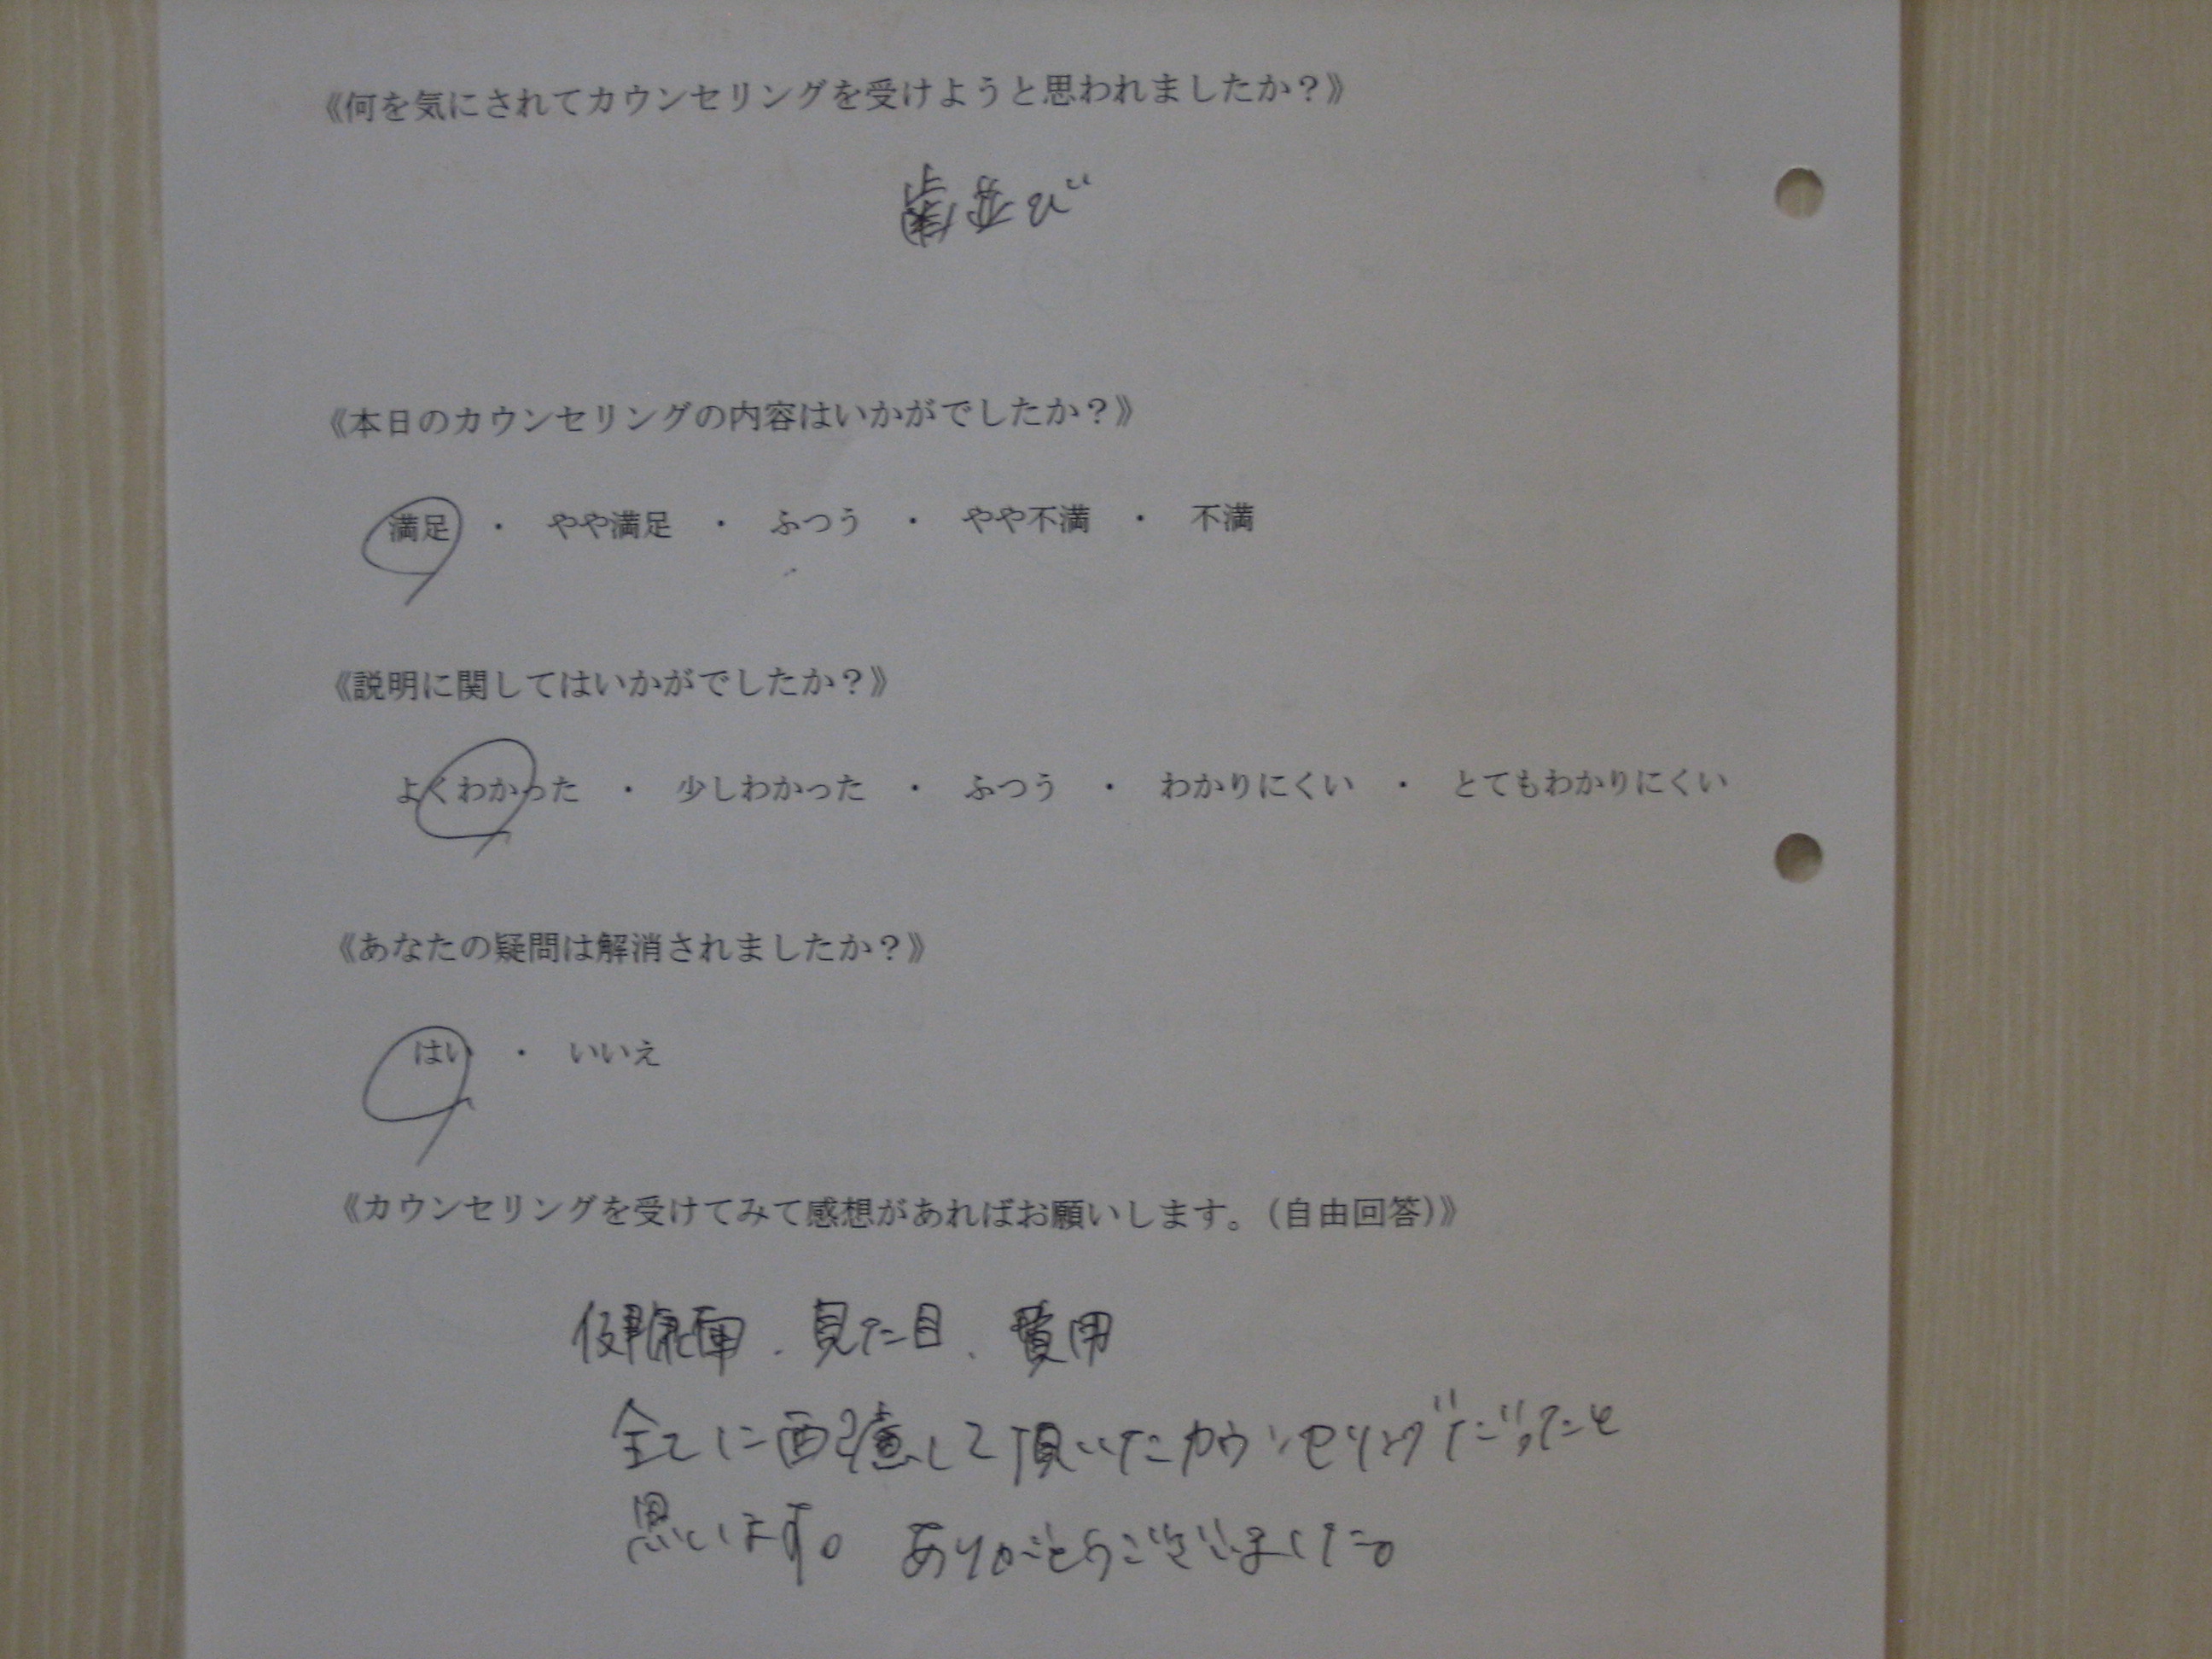 《何を気にされてカウンセリングを受けようと思われましたか？》
歯並び
《本日のカウンセリングの内容はいかがでしたか？》
満足 ・ やや満足 ・ ふつう ・ やや不満 ・ 不満
《説明に関してはいかがでしたか？》
よくわかった ・ 少しわかった ・ ふつう ・ わかりにくい ・ とてもわかりにくい
《あなたの疑問は解消されましたか？》
はい ・ いいえ
《カウンセリングを受けてみて感想があればお願いします。（自由回答）》
健康面、見た目、費用
全てに配慮して頂いたカウンセリングだったと
思います。ありがとうございました。